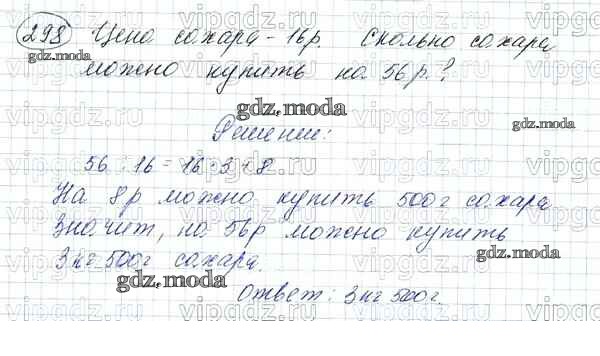 298 Цена сахара - 16р. Сколько сахара
можно купить на 56р.?
Решение:
56 : 16 = 16 · 3 + 8
На 8р можно купить 500г сахара
Значит, на 56р можно купить
3кг 500г сахара.
Ответ: 3кг 500г.
gdz.moda
gdz.moda
gdz.moda
gdz.moda
gdz.moda
gdz.moda
vipgdz.ru